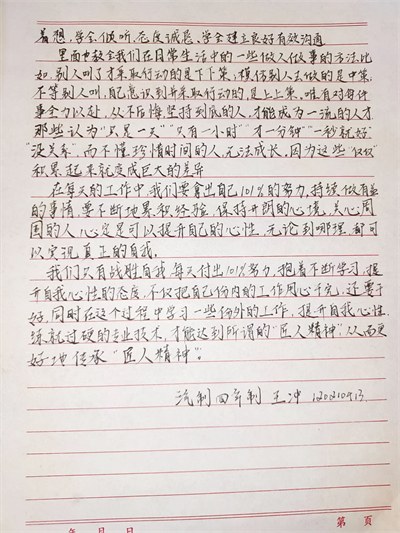 着想,学会倾听,态度诚恳,学会建立良好有效沟通
里面也教会我们在日常生活中的一些做人做事的方法,比
如,别人叫了才采取行动的是下下策;模仿别人去做的是中策,
不等别人叫,自己意识到并采取行动的,是上上策。唯有对每件
事全力以赴,从不后悔,坚持到底的人,才能成为一流的人才,
那些认为“只是一天”“只有一小时”“才一分钟”“一秒就好”
“没关系”,而不懂珍惜时间的人,无法成长,因为这些“仅仅”
积累起来就变成巨大的差异
在每天的工作中,我们要拿出自己101%的努力,持续做有益
的事情,要不断地累积经验,保持开朗的心境,关心周
围的人,心定是可以提升自己的心性,无论到哪里,都可
以实现真正的自我。
我们只有战胜自我,每天付出101%努力,抱着不断学习,提
升自我心性的态度,不仅把自己份内的工作用心干完,还要干
好,同时在这个过程中学习一些份外的工作,提升自我心性
练就过硬的专业技术,才能达到所谓的“匠人精神”,从而更
好地传承“匠人精神”。
汽制四车制 王冲
年 月 日 第 頁